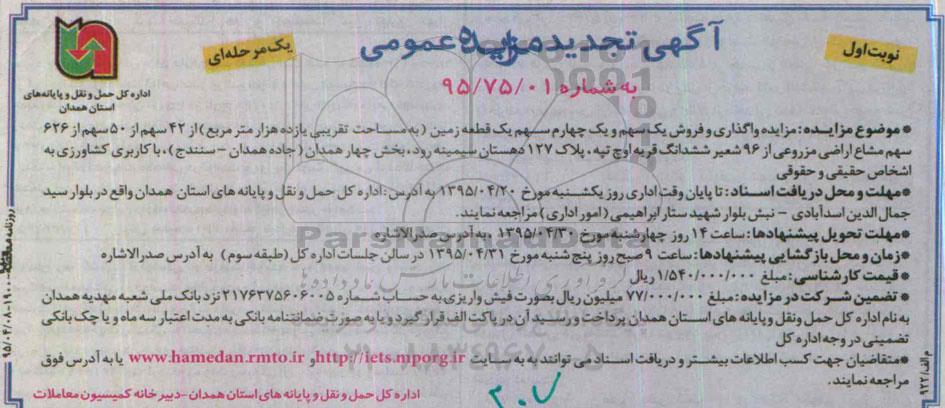 نوبت اول
آگهی تجدید مزایده عمومی
یک مرحله‌ای
به شماره ۹۵/۷۵/۰۱
اداره کل حمل و نقل و پایانه‌های
استان همدان
* موضوع مزایـده: مزایده واگذاری و فروش یک سهم و یک چهارم سـهم یک قطعه زمین (به مساحت تقریبی یازده هزار متر مربع) از ۴۲ سهم از ۵۰ سهم از ۶۲۶
سهم مشاع اراضی مزروعی از ۹۶ شعیر ششدانگ قریه اوچ تپه، پلاک ۱۲۷ دهستان سیمینه رود، بخش چهار همدان (جاده همدان - سنندج)، با کاربری کشاورزی به
اشخاص حقیقی و حقوقی
* مهلت و محل دریافت اسـناد: تا پایان وقت اداری روز یکشـنبه مورخ ۱۳۹۵/۰۴/۲۰ به آدرس: اداره کل حمل و نقل و پایانه های استان همدان واقع در بلوار سید
جمال الدین اسدآبادی - نبش بلوار شهید ستار ابراهیمی (امور اداری) مراجعه نمایند.
* مهلت تحویل پیشنهادها: ساعت ۱۴ روز چهارشنبه مورخ ۱۳۹۵/۰۴/۳۰ به آدرس صدرالاشاره
* زمان و محل بازگشایی پیشنهادها: ساعت ۹ صبح روز پنج شنبه مورخ ۱۳۹۵/۰۴/۳۱ در سالن جلسات اداره کل (طبقه سوم) به آدرس صدرالاشاره
* قیمت کارشناسی: مبلغ ۱/۵۴۰/۰۰۰/۰۰۰ ریال
* تضمین شـرکت در مزایده: مبلغ ۷۷/۰۰۰/۰۰۰ میلیون ریال بصورت فیش واریزی به حساب شماره ۲۱۷۶۳۷۵۶۰۶۰۰۵ نزد بانک ملی شعبه مهدیه همدان
به نام اداره کل حمل ونقل وپایانه های اسـتان همدان پرداخت و رسـید آن در پاکت الف قرار گیرد و یا به صورت ضمانتنامه بانکی به مدت اعتبار سه ماه و یا چک بانکی
تضمینی در وجه اداره کل
* متقاضیان جهت کسب اطلاعات بیشتر و دریافت اسـناد می توانند به به سـایت http://iets.mporg.ir و www.hamedan.rmto.ir یا به آدرس فوق
مراجعه نمایند.
اداره کل حمل و نقل و پایانه های استان همدان - دبیرخانه کمیسیون معاملات
م الف/۹۲۲
ParsNamadData
۰۲۱-۸۸۳۴۹۶۷۰-۵